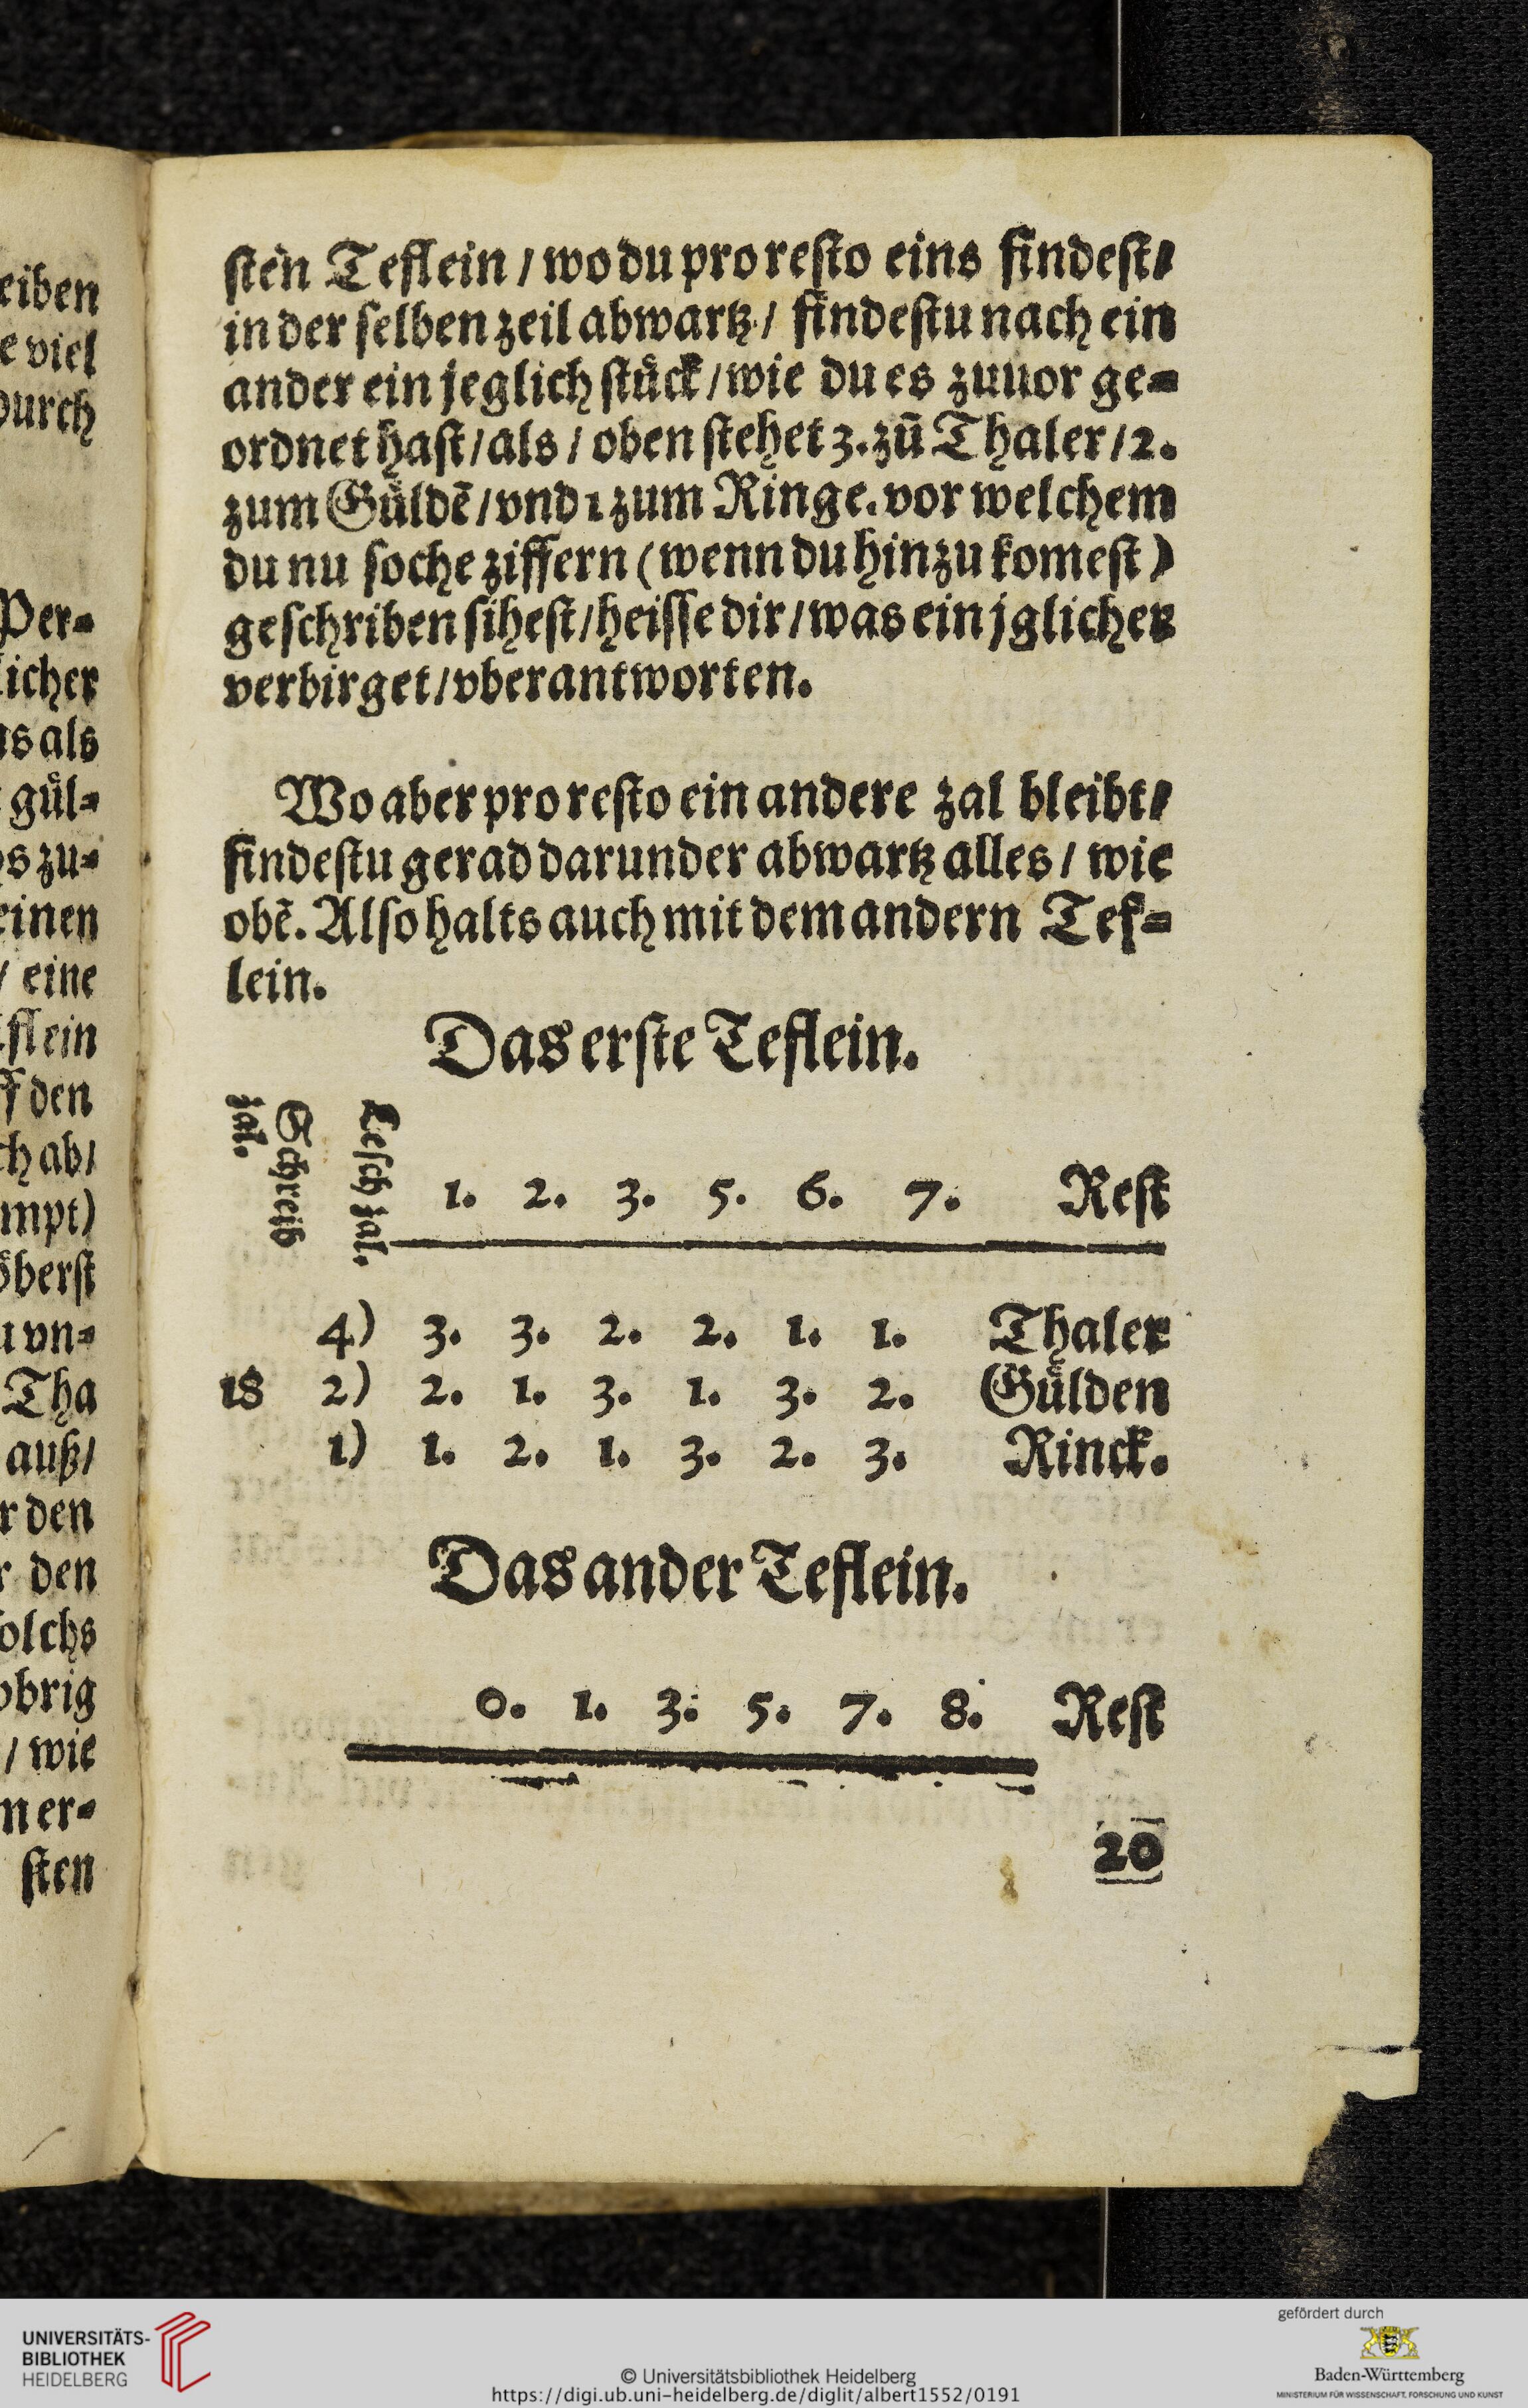 eiben
e viel
durch
Per-
licher
us als
gůl-
s zu-
einen
/ eine
eflein
ff den
ch ab/
mpt)
öberst
u vn-
Tha
auß/
r den
r den
solchs
vbrig
/ wie
m er-
sten
sten Teflein / wo du pro resto eins findest/
in der selben zeil abwartz / findestu nach ein
ander ein jeglich stůck / wie du es zuuor ge-
ordnet hast / als / oben stehet 3. zū Thaler / 2.
zum Gůldē / vnd 1 zum Ringe. vor welchem
du nu soche ziffern (wenn du hinzu komest)
geschriben sihest / heisse dir / was ein jglicher
verbirget / vberantworten.
Wo aber pro resto ein andere zal bleibt/
findestu gerad darunder abwartz alles / wie
obē. Also halts auch mit dem andern Tef-
lein.
Das erste Teflein.
Schreib
zal.
Lesch zal.
1. 2. 3. 5. 6. 7. Rest
4) 3. 3. 2. 2. 1. 1. Thaler
18 2) 2. 1. 3. 1. 3. 2. Gůlden
1) 1. 2. 1. 3. 2. 3. Rinck.
Das ander Teflein.
0. 1. 3. 5. 7. 8. Rest
20
UNIVERSITÄTS-
BIBLIOTHEK
HEIDELBERG
© Universitätsbibliothek Heidelberg
https://digi.ub.uni-heidelberg.de/diglit/albert1552/0191
gefördert durch
Baden-Württemberg
MINISTERIUM FÜR WISSENSCHAFT, FORSCHUNG UND KUNST